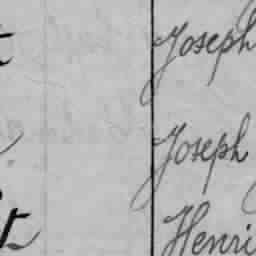 Joseph
Joseph
Henri